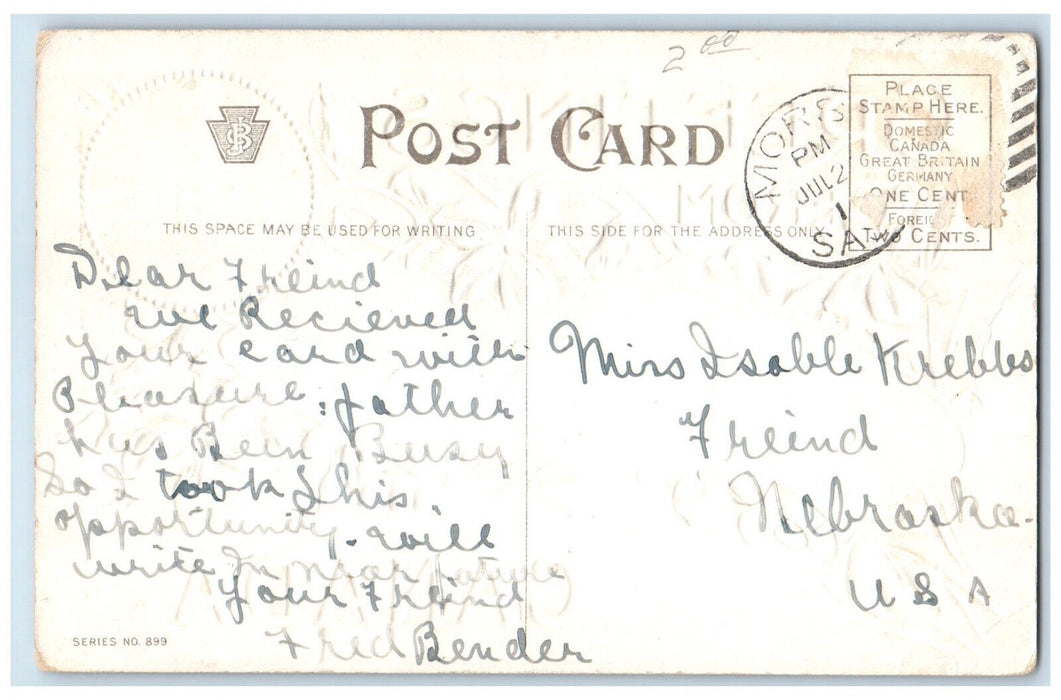 2 00
POST CARD
PLACE
STAMP HERE.
DOMESTIC
CANADA
GREAT BRITAIN
GERMANY
ONE CENT
FOREIG
TWO CENTS.
MORS
PM
JUL 2
1
SA
THIS SPACE MAY BE USED FOR WRITING
THIS SIDE FOR THE ADDRESS ONLY
Dear Freind
We Recieved
Your card with
Pleasure. father
has Bein Busy
So I took This
opportunity. will
write In near future
Your Freind
Fred Bender
SERIES NO. 899
Miss Isable Krebbs
Freind
Nebraska.
U S A